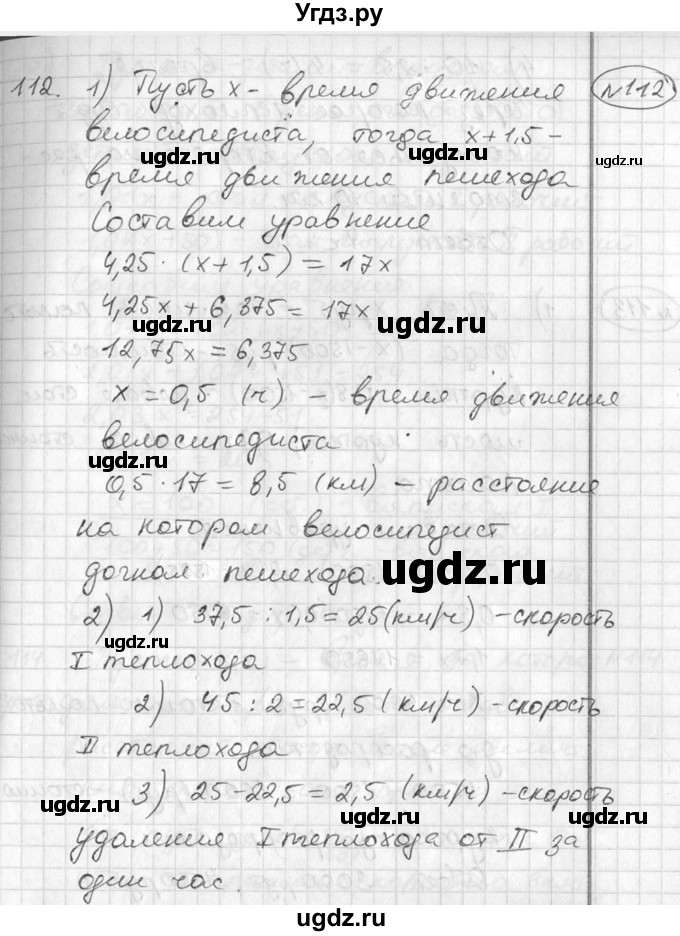 Угдз.ру
112. 1) Пусть x - время движения
№112
велосипедиста, тогда x+1,5 -
время движения пешехода
Составим уравнение
4,25 · (x + 1,5) = 17x
4,25x + 6,375 = 17x
12,75x = 6,375
x = 0,5 (ч) - время движения
велосипедиста
0,5 · 17 = 8,5 (км) - расстояние
на котором велосипедист
догнал пешехода.
2) 1) 37,5 : 1,5 = 25 (км/ч) - скорость
I теплохода
2) 45 : 2 = 22,5 (км/ч) - скорость
II теплохода
3) 25 - 22,5 = 2,5 (км/ч) - скорость
удаления I теплохода от II за
один час.
ugdz.ru
ugdz.ru
ugdz.ru
ugdz.ru
ugdz.ru
ugdz.ru
ugdz.ru
ugdz.ru
ugdz.ru
ugdz.ru
ugdz.ru